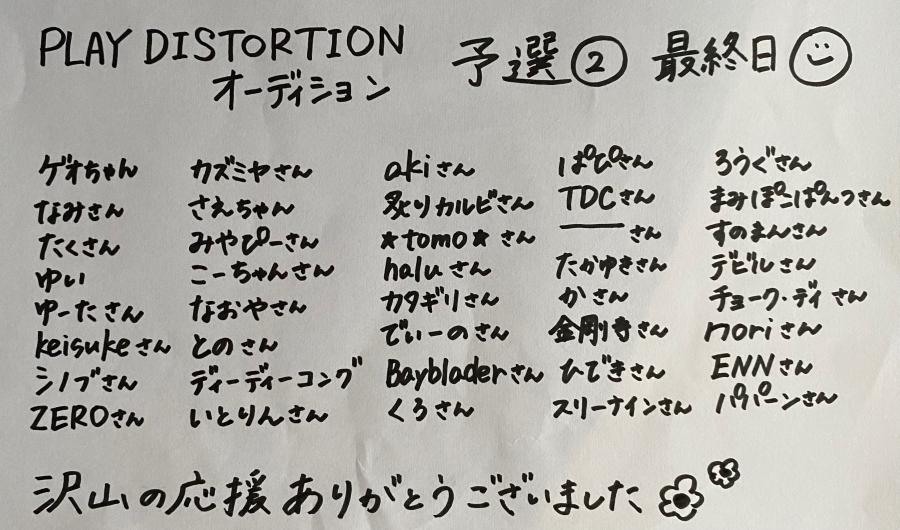 PLAY DISTORTION
オーディション
予選② 最終日
ゲオちゃん
なみさん
たくさん
ゆい
ゆーたさん
keisukeさん
シノブさん
ZEROさん
カズミヤさん
さえちゃん
みやぴーさん
こーちゃんさん
なおやさん
とのさん
ディーディーコング
いとりんさん
akiさん
炙りカルビさん
★tomo★さん
haluさん
カタギリさん
でぃーのさん
Baybladerさん
くろさん
ぱぴさん
TDCさん
――さん
たかゆきさん
かさん
金剛寺さん
ひできさん
スリーナインさん
ろうぐさん
まみぽこぱんつさん
すのまんさん
デビルさん
チョーク・ディさん
noriさん
ENNさん
パパーンさん
沢山の応援ありがとうございました